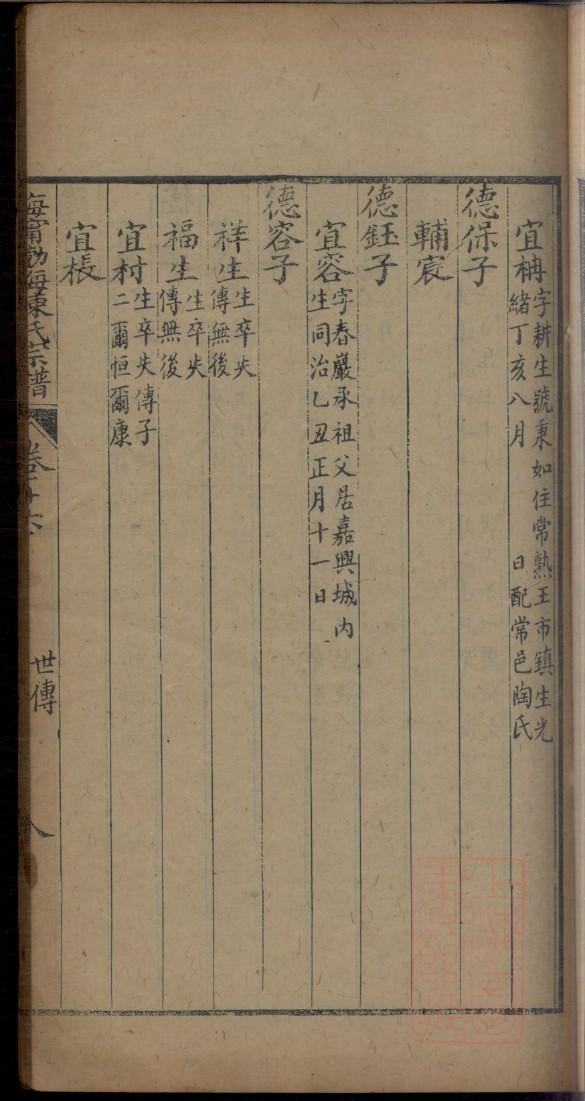 宜秞字耕生號秉如住常熟王市鎮生光
緒丁亥八月 日配常邑陶氏
德保子
輔宸
德鈺子
宜容字春巖承祖父居嘉興城內
生同治乙丑正月十一日
德容子
祥生生卒失
傳無後
福生生卒失
傳無後
宜村生卒失傳子
二爾恒爾康
宜棖
海甯勃海陳氏宗譜
卷十六
世傳
八